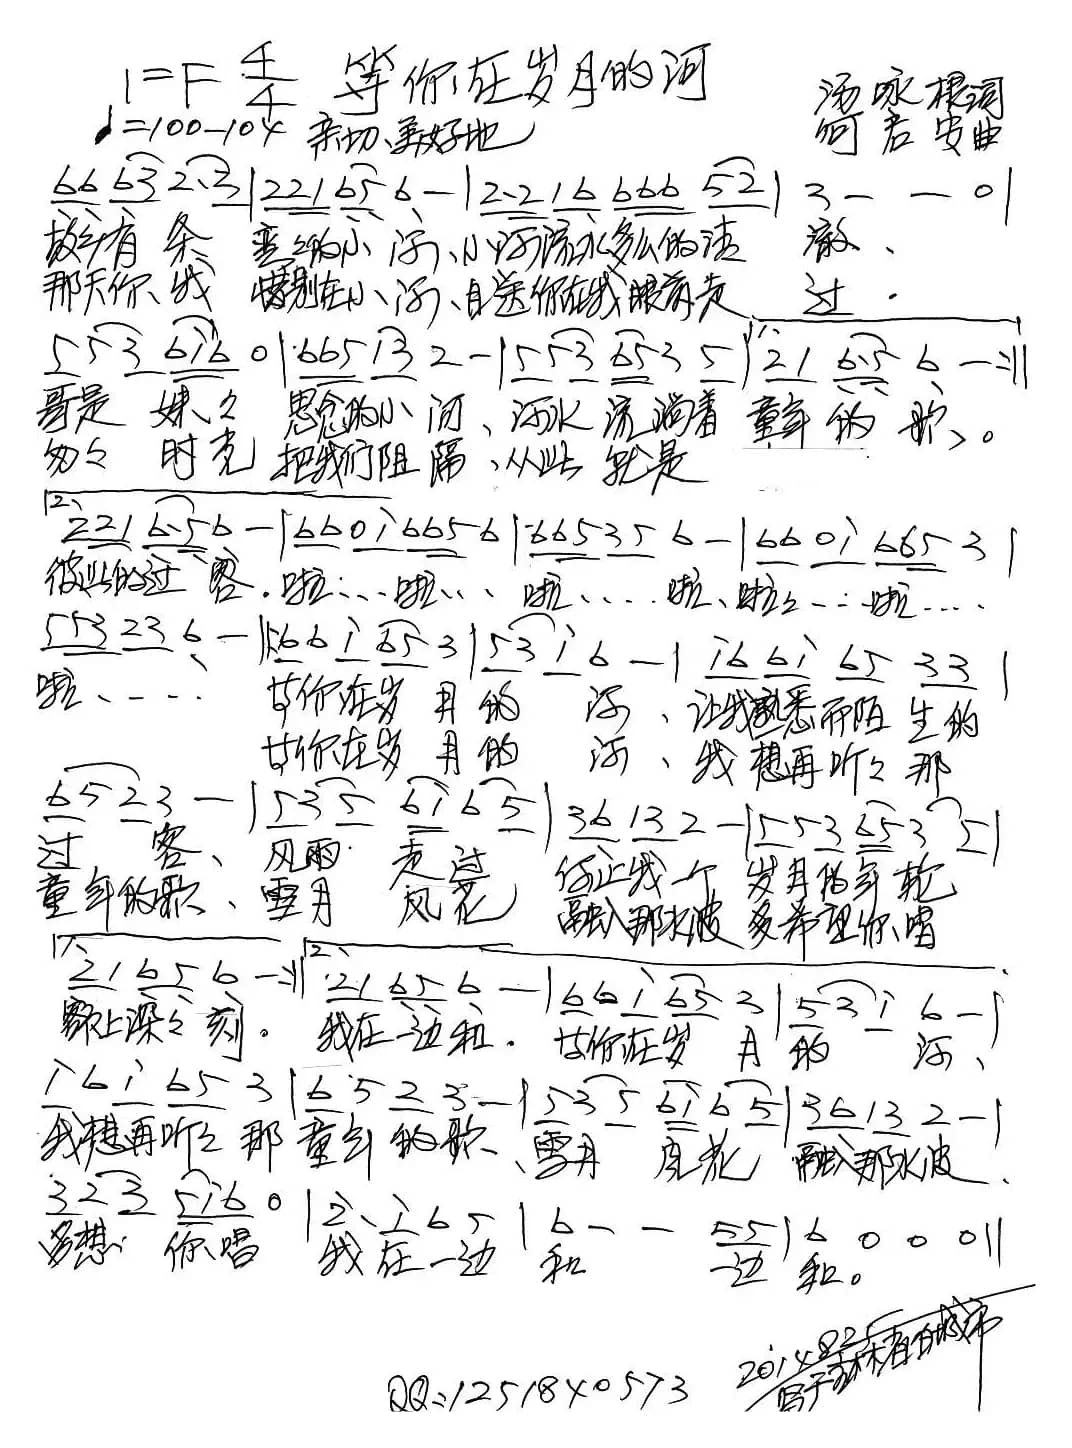 1=F 4/4 等你在岁月的河
♩=100—104 亲切、美好地
汤咏根词
何君安曲
66 63 2·3 | 221 65 6 — | 2·2 16 666 52 | 3 — — 0 |
故乡有条 弯々的小河、小河流水多么的清澈、
那天你、我 惜别在小河、目送你在我眼前走过.
5 53 6i6 0 | 665 13 2 — | 5 53 653 5 | 1、 21 6·5 6 — :||
哥是妹々 思念的小河、河水流淌着 童年的歌、。
匆々时光 把我们阻隔、从此就是
2、 221 6·5 6 — | 66 0i 665 6 | 665 35 6 — | 66 0i 665 3 |
彼此的过客. 啦……啦…… 啦…… 啦、啦々……啦……
553 23 6 — | 66 i 65 3 | 53 i 6 — | i6 6i 65 33 |
啦…… 等你在岁月的河、让我熟悉而陌生的
等你在岁月的河、我想再听々那
65 23 — | 53 5 6i 6 5 | 36 13 2 — | 5 53 653 5 |
过客、风雨走过 你让我一个 岁月的年轮
童年的歌、雪月风花 融入那水波 多希望你唱
1、 21 65 6 — :|| 2、 21 65 6 — | 66 i 65 3 | 53 i 6 — |
额上深々刻. 我在一边和. 等你在岁月的河、
i 6 i 65 3 | 6 5 2 3 — | 53 5 6i 6 5 | 36 13 2 — |
我想再听々那童年的歌、雪月风花 融入那水波.
32 3 5i6 0 | 2、i 6 5 | 6 — — 55 | 6 0 0 0 ||
多想 你唱 我在一边 和 一边 和。
2014.8.25
写于吉林省白城市
QQ:1251840573